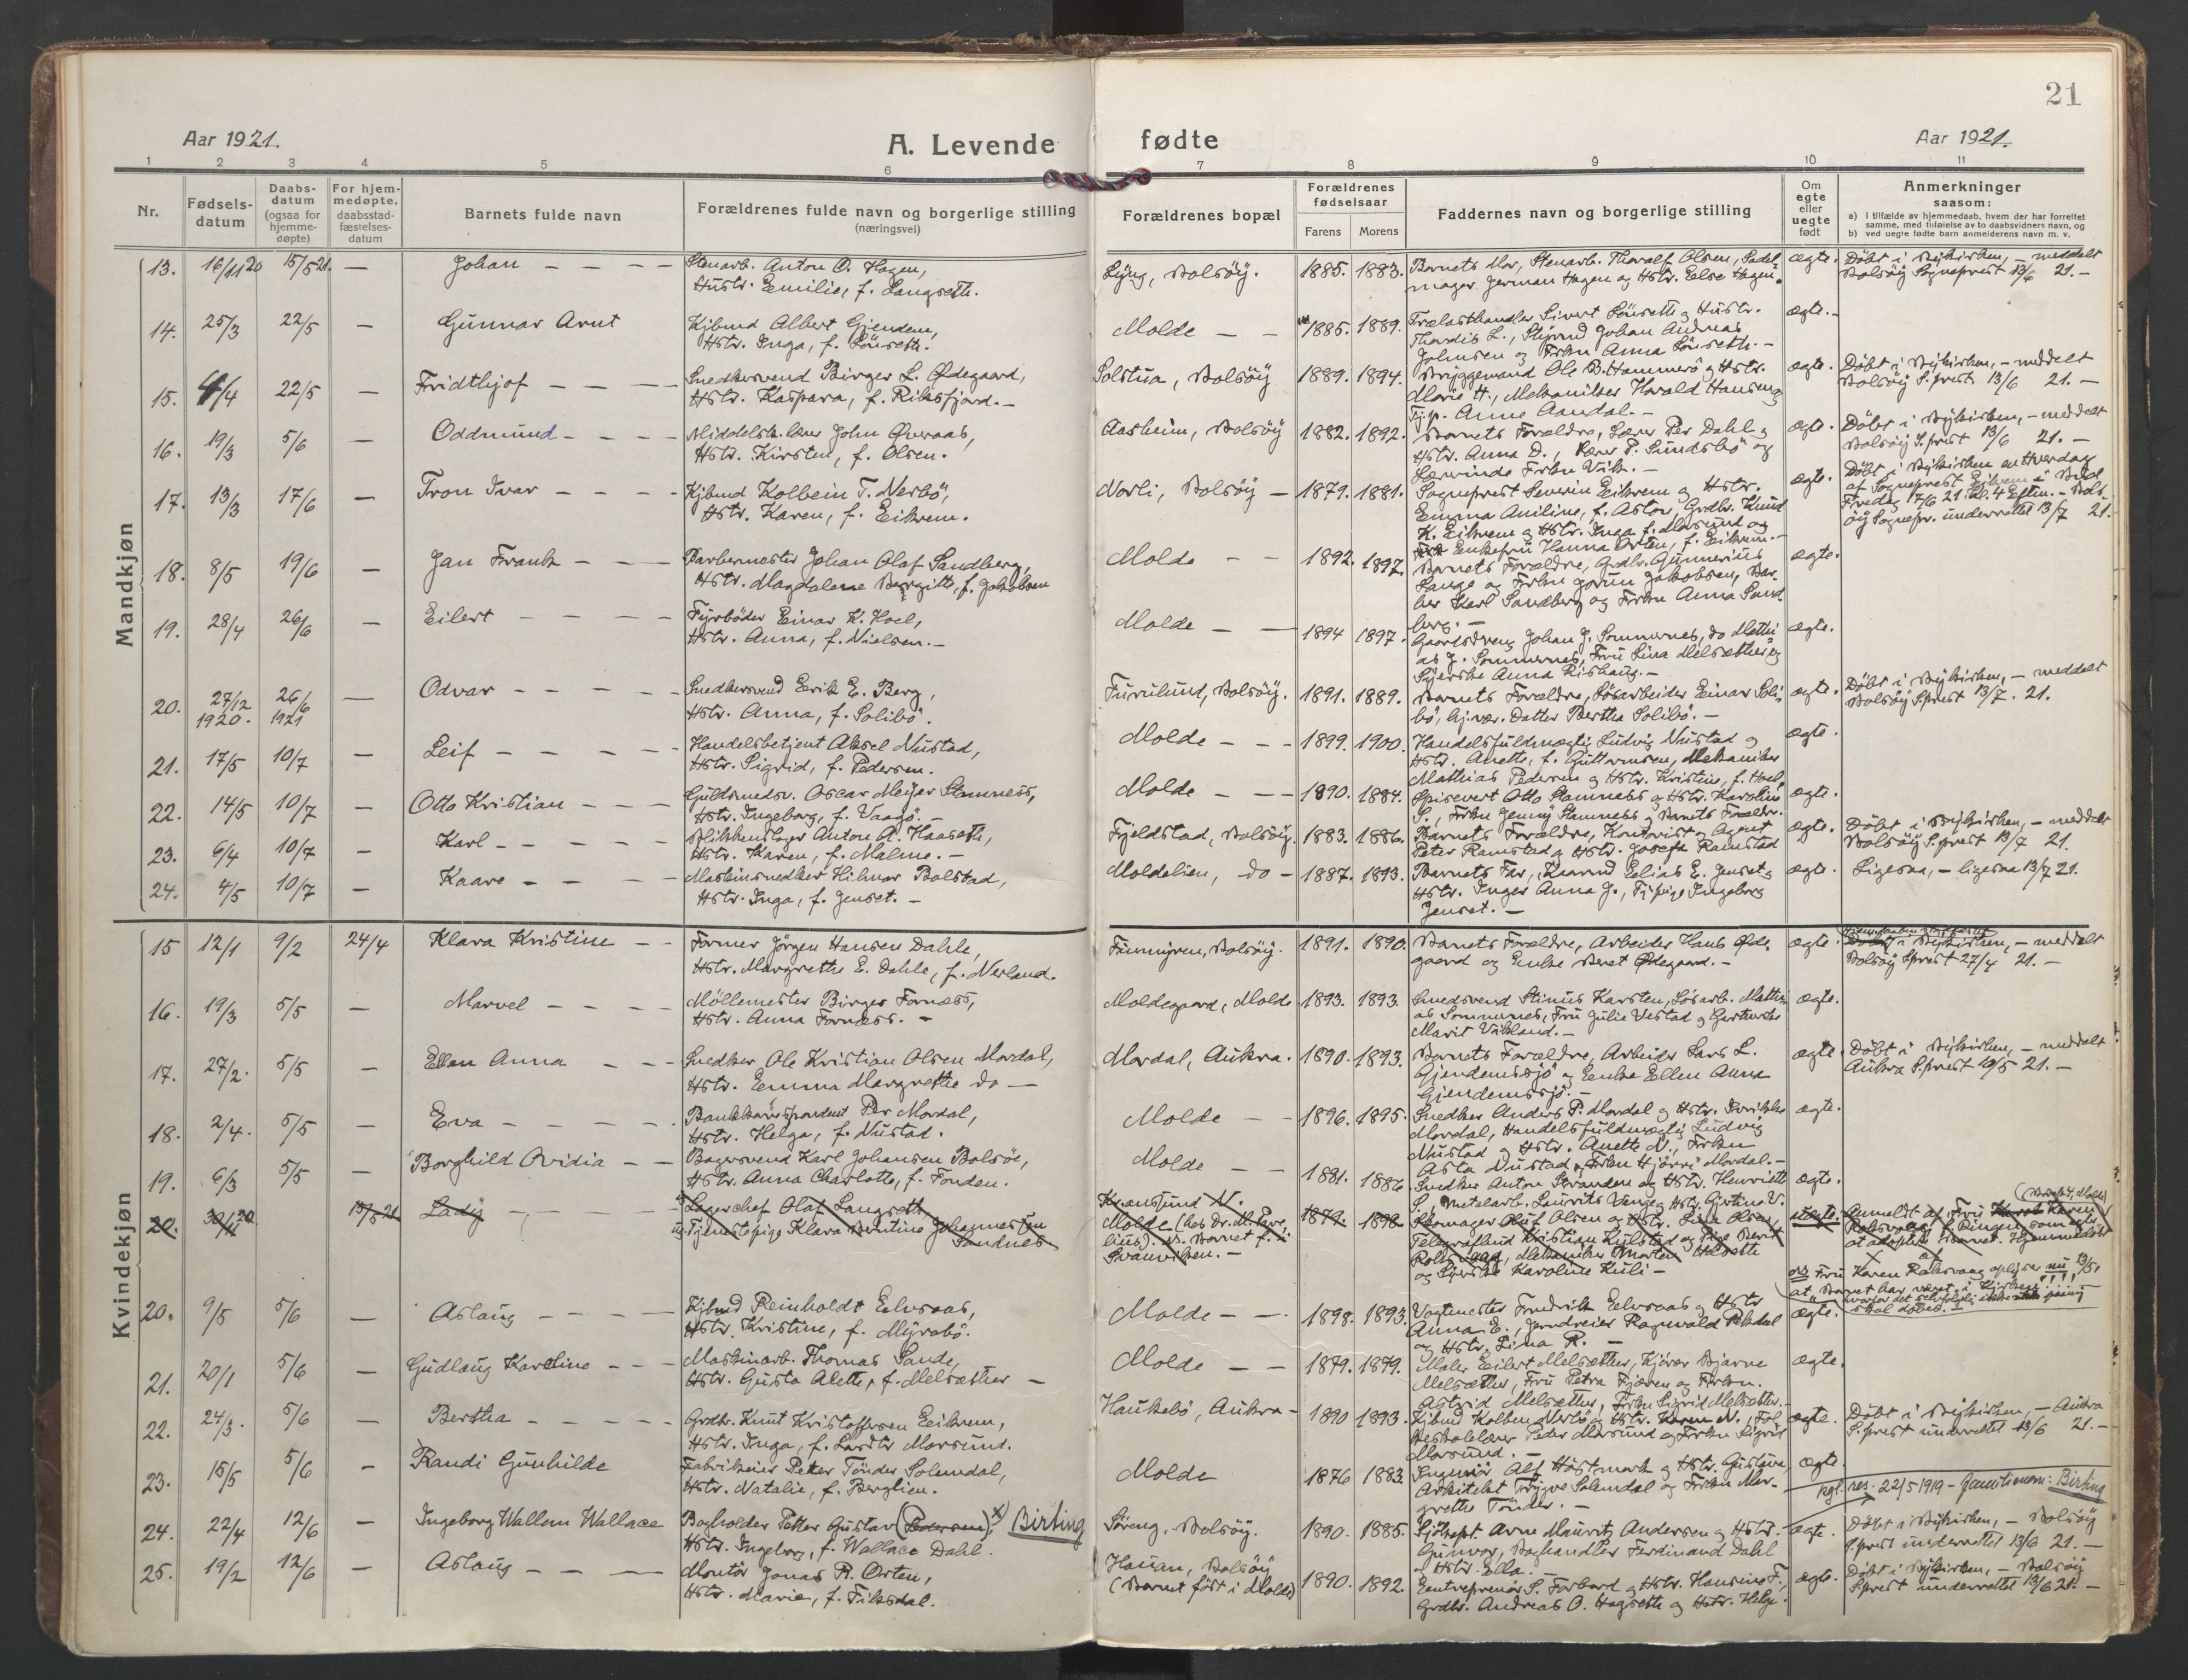 21
Aar 1921.
A. Levende fødte
Aar 1921.
1 2 3 4 5 6 7 8 9 10 11
Nr.
Fødsels-
datum
Daabs-
datum
(ogsaa for
hjemme-
døpte)
For hjem-
medøpte,
daabsstad-
fæstelses-
datum
Barnets fulde navn
Forældrenes fulde navn og borgerlige stilling
(næringsvei)
Forældrenes bopæl
Forældrenes
fødselsaar
Farens Morens
Faddernes navn og borgerlige stilling
Om
egte
eller
uegte
født
Anmerkninger
saasom:
a) i tilfælde av hjemmedaab, hvem der har forrettet
samme, med tilføielse av to daabsvidners navn, og
b) ved uegte fødte barn anmelderens navn m. v.
Mandkjøn
13. 16/11 20 15/5 21. — Johan — Stenarb. Anton O. Hagen,
Hustr. Emilie, f. Langseth.
Lÿng, Bolsöÿ. 1885. 1883. Barnets Mor, Stenarb. Tharalf Olsen, Sadel-
mager German Hagen og Hstr. Else Hagen.
ægte. Döbt i Bÿkirken, — meddelt
Bolsöÿ Sogneprest 13/6 21. —
14. 25/3 22/5 — Gunnar Arnt Kjbmd Albert Gjendem,
Hstr. Inga, f. Lönseth.
Molde — 1885. 1889. Trælasthandler Sivert Lönseth og Hustr.
Thordis L., Stÿrmd Johan Andreas
Johnsen og Frkn Anna Lönseth. —
ægte. —
15. 4/4 22/5 — Fridthjof — Snedkersvend Birger L. Ødegaard,
Hstr. Kaspara, f. Riksfjord. —
Solstua, Bolsöÿ 1889. 1894. Brÿggemand Ole B. Hammerö og Hstr.
Marie H., Mekaniker Harald Hansen og
Tj.p. Anne Aandal. —
ægte. Döbt i Bÿkirken, — meddelt
Bolsöÿ S.prest 13/6 21. —
16. 19/3 5/6 — Oddmund — Middelsk.lærer John Øveraas,
Hstr. Kirsten, f. Olsen.
Aasheim, Bolsöÿ 1882. 1892. Barnets Forældre, Lærer Per Dahl og
Hstr. Anna D., Lærer P. Sundsbö og
Lærerinde Frkn Vik. —
ægte. Döbt i Bÿkirken, — meddelt
Bolsöÿ S.prest 13/6 21. —
17. 13/3 17/6 — Tron Ivar — Kjbmd Kolbein T. Nerbö,
Hstr. Karen, f. Eikrem.
Norli, Bolsöÿ — 1879. 1881. Sogneprest Severin Eikrem og Hstr.
Emma Aniline, f. Aston, Grdbr. Knud
K. Eikrem og Hstr. Inga f. Morsund og
Enkefru Hanna Orten, f. Eikrem. —
ægte. Döbt i Bÿkirken en Hverdag
af Sogneprest Eikrem i Bud
Fredag 17/6 21 kl. 4 Eftm. — Bols-
öÿ Sognepr. underrettet 13/7 21.
18. 8/5 19/6 — Jan Frank — Barbermester Johan Olaf Sandberg,
Hstr. Magdalene Birgitte, f. Jakobsen
Molde — 1892. 1897. Barnets Forældre, Grdbr. Gunnerius
Lange og Frkn Jorun Jakobsen, Bar-
ber Karl Sandberg og Frkn Anna Sand-
berg. —
ægte.
19. 28/4 26/6 — Eilert — Fÿrböder Einar K. Hoel,
Hstr. Anna, f. Nielsen. —
Molde — 1894 1897. Gaardsdreng Johan J. Sommernes, do Mathi-
as J. Sommernes, Fru Lina Melsæther og
Sÿerske Anna Rishaug. —
ægte.
20. 27/12 1920. 26/6 1921 — Odvar — Snedkersvend Eerik E. Berg,
Hstr. Anna, f. Solibö.
Furulund, Bolsöÿ. 1891. 1889. Barnets Forældre, Lösarbeider Einar Soli-
bö, hj.vær. Datter Bertha Solibö. —
ægte. Döbt i Bÿkirken, — meddelt
Bolsöÿ S.prest 13/7. 21.
21. 17/5 10/7 — Leif — Handelsbetjent Aksel Nustad,
Hstr. Sigrid, f. Pedersen.
Molde — 1899. 1900. Handelsfuldmægtig Ludvig Nustad og
Hstr. Anette, f. Guttormsen, Mekaniker
Mathias Pedersen og Hstr. Kristine, f. Hoel.
ægte.
22. 14/5 10/7 — Otto Kristian — Guldsmedsv. Oscar Meÿer Stamness,
Hstr. Ingeborg, f. Vaagö. —
Molde — 1890. 1884. Spisevert Otto Stamness og Hstr. Karoline
S., Frkn Jennÿ Stamness og Barnets Forældre.
ægte.
23. 6/4 10/7 — Karl — Blikkenslager Anton A. Haaseth,
Hstr. Karen, f. Malme. —
Fjeldstad, Bolsöÿ. 1883. 1886. Barnets Forældre, Kontorist og Agent
Peter Ramstad og Hstr. Josefa Ramstad
ægte. Döbt i Bÿkirken, — meddelt
Bolsöÿ S.prest 13/7 21.
24. 4/5 10/7 — Kaare — Maskinsnedker Hilmar Bolstad,
Hstr. Inga, f. Jenset. —
Moldelien, do — 1887. 1893. Barnets Far, Elias E. Jenset og
Hstr. Inger Anna J., Tj.pige Ingeborg
Jenset. —
ægte. Ligesaa, — ligesaa 13/7 21.
Kvindekjøn
15 12/1 9/2 24/4 Klara Kristine — Former Jörgen Hansen Dahle,
Hstr. Margrethe E. Dahle, f. Nerland.
Furmÿren, Bolsöÿ. 1891. 1890. Barnets Forældre, Arbeider Hans Øde-
gaard og Enke Beret Ødegaard. —
ægte. i Bÿkirken, — meddelt
Bolsöÿ Sprest 27/4 21. —
16. 19/3 5/5 — Marvel — Möllemester Birger Fornæss,
Hstr. Anna Fornæss. —
Moldegaard, Molde 1893. 1893. Smedsvend Stinus Karsten, Lösarb. Mathi-
as Sommernes, Fru Julie Vestad og
Marit Vikland. —
ægte.
17. 27/2. 5/5 — Ellen Anna — Snedker Ole Kristian Olsen Mordal,
Hstr. Emma Margrethe do —
Mordal, Aukra. 1890. 1893. Barnets Forældre, Arbeider Lars L.
Gjendemssjö og Enke Ellen Anna
Gjendemssjö. —
ægte. Döbt i Bÿkirken, — meddelt
Aukra S.prest 10/5 21. —
18. 2/4. 5/5 — Eva — Bankkorrespondent Per Mordal,
Hstr. Helga, f. Nustad.
Molde — 1896. 1895. Snedker Anders P. Mordal og Hstr.
Mordal, Handelsfuldmægtig Ludvig
Nustad og Hstr. Anette N., Frkn
Asta Nustad, Frkn Mordal. —
ægte.
19. 6/3 5/5 — Borghild Ovidia — Bagersvend Karl Johansen Bolsöe,
Hstr. Anna Charlotte, f. Fonden.
Molde — 1881. 1886. Snedker Anton Stranden og Hstr. Henriette
S., Metalarb. Laurits Venge og Hstr. Gjertine V.
ægte.
20. 30/11 20. 15/5 21 Ladÿ — Lagerchef Olaf Langseth
ug Tjenestepige Klara Johannesen
Sandnes
Kr.ansund N.
Molde (hos Dr. M.
). N. Barnet f. i
Svanviken. —
1879. 1898. Skomager Oluf Olsen og Hstr. Lina Olsen,
Telegrafbud Kristian Kulstad og Pige Berit
Rolsvaag, Mekaniker Morten Hilseth
og Sÿerske Karoline Kuli —
uægte. Anmeldt af Fru Karen
Rolsvaag f. Ringen, som agter
at adoptere Barnet. Hjemmedöbt
Fru Karen Rolsvaag oplÿser nu 13/5,
at Barnet har været i Kirken!!!!
hvorfor det selvfölgelig ikke
skal döbes.
20. 9/5 5/6 — Aslaug — Kjbmd Reinholdt Eelvsaas,
Hstr. Kristine, f. Mÿrabö.
Molde — 1898. 1893. Vagtmester Fredrik Eelvsaas og Hstr
Anna E., Ragnvald Rekdal
og Hstr. Lina R. —
ægte.
21. 20/1 5/6 — Gudlaug Karoline — Maskinarb. Thomas Sande,
Hstr. Gusta Alette, f. Melsæther —
Molde — 1879. 1879. Maler Eilert Melsæther, Kjörer Bjarne
Melsæther, Fru Petra Fjæren og Frkn.
Astrid Melsæther, Frkn Sigrid Melsæther. —
ægte.
22. 24/3. 5/6 — Bertha — Grdbr. Knut Kristoffersen Eeikrem,
Hstr. Inga, f. Morsund.
Haukebö, Aukra — 1890 1893. Kjbmd Kolben Nerbö og Hstr. Karen N., Fol-
keskolelærer Peder Morsund og Frkn Sigrid
Morsund. —
ægte. Döbt i Bÿkirken, — Aukra
S.prest underrettet 13/6 21. —
23. 15/5 5/6 — Randi Gunhilde Fabrikeier Petter Tönder Solemdal,
Hstr. Natalie, f. Berglien.
Molde 1876 1883. Ingeniör Alf Höstmark og Hstr. Gustava,
Arkitekt Trÿgve Solemdal og Frkn Mar-
grethe Tönder. —
ægte.
kgl. res. 22/5 1919 — familienavn: Birting
24. 22/4 12/6 — Ingeborg Wallem Wallace Bogholder Petter Gustav (Pedersen) x) Birting
Hstr. Ingeborg, f. Wallace Dahl.
Söreng, Bolsöÿ. 1890. 1885. Sjökapt. Arne Mauritz Andersen og Hstr.
Gunvor, Boghandler Ferdinand Dahl
og Hstr. Ella.
ægte. Döbt i Bÿkirken, — Bolsöÿ
S.prest underrettet 13/6 21. —
25. 19/2 12/6 — Aslaug — Montör Jonas R. Orten,
Hstr. Marie, f. Fiksdal.
Hauan, Bolsöÿ
(Barnet födt i Molde)
1890. 1892. Eentreprenör S. Forbord og Hstr. Hansine F.,
Grdbr. Andreas O. Hagseth og Hstr. Helga.
ægte. Döbt i Bÿkirken, — Bolsöÿ
S.prest underrettet 13/6 21. —